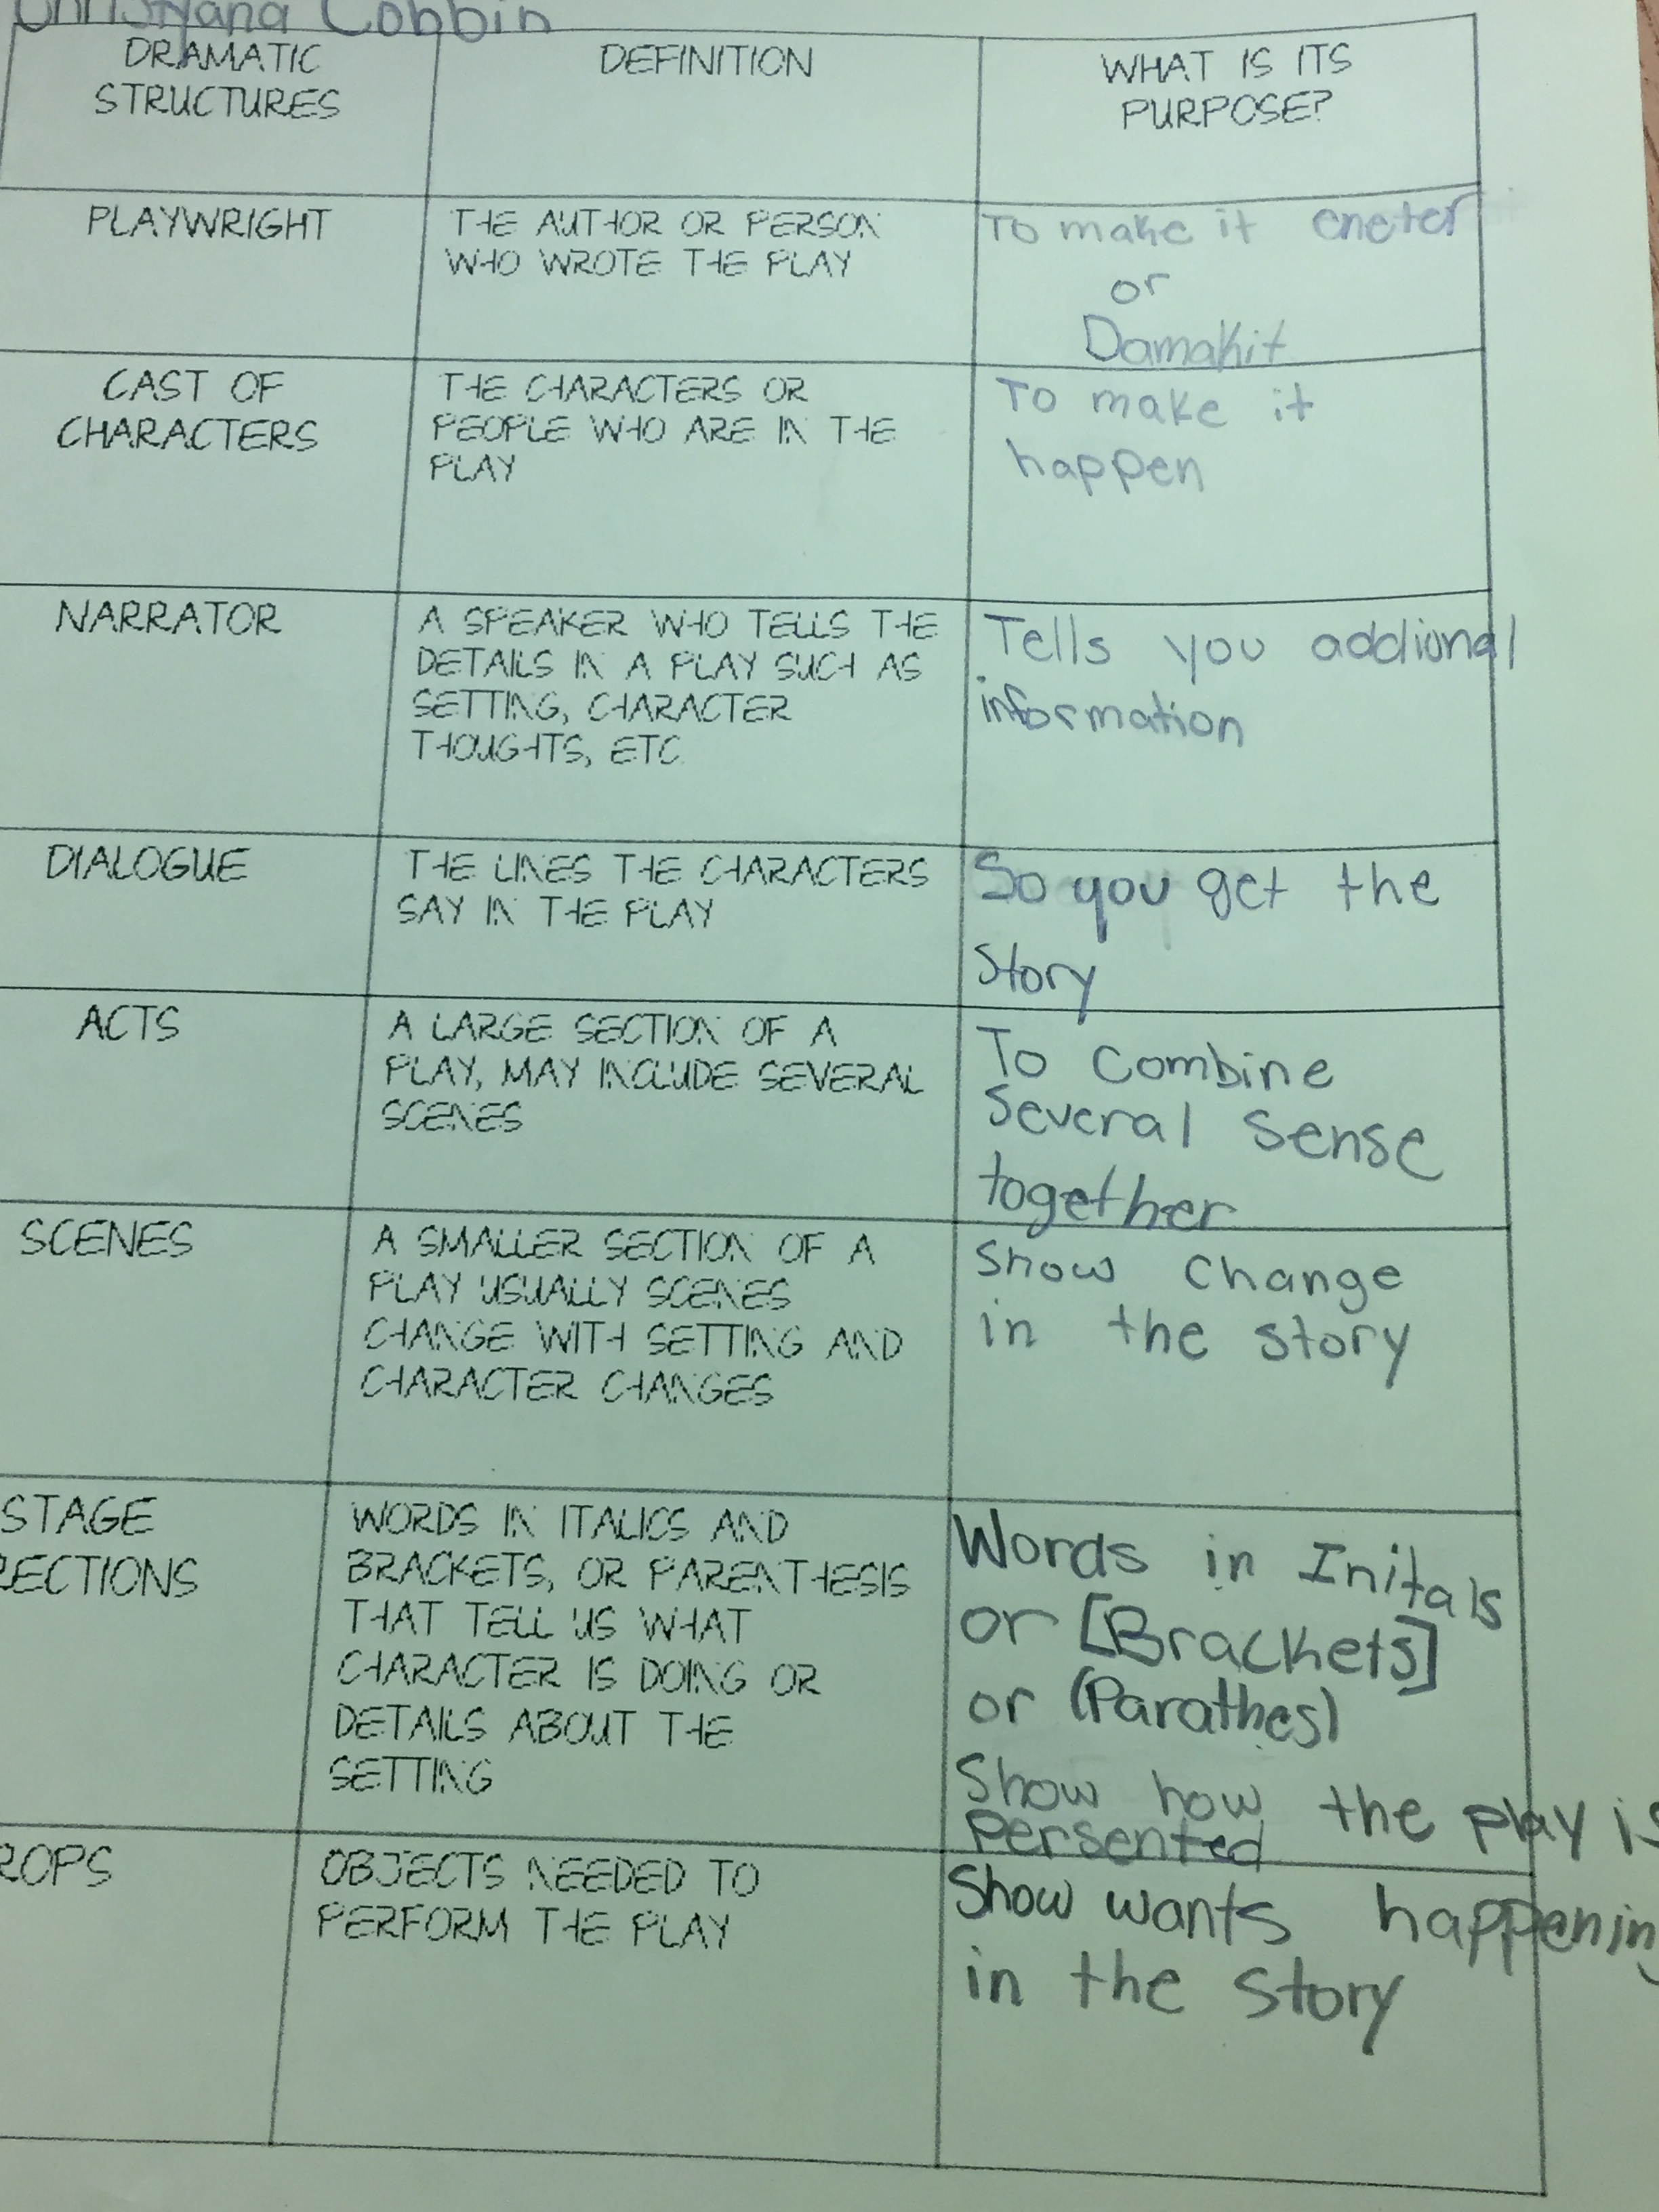 Christyana Cobbin
DRAMATIC
STRUCTURES
DEFINITION
WHAT IS ITS
PURPOSE?
PLAYWRIGHT
THE AUTHOR OR PERSON
WHO WROTE THE PLAY
To make it eneter
or
Damakit
CAST OF
CHARACTERS
THE CHARACTERS OR
PEOPLE WHO ARE IN THE
PLAY
To make it
happen
NARRATOR
A SPEAKER WHO TELLS THE
DETAILS IN A PLAY SUCH AS
SETTING, CHARACTER
THOUGHTS, ETC.
Tells you addional
information
DIALOGUE
THE LINES THE CHARACTERS
SAY IN THE PLAY
So you get the
Story
ACTS
A LARGE SECTION OF A
PLAY, MAY INCLUDE SEVERAL
SCENES
To combine
several sense
together
SCENES
A SMALLER SECTION OF A
PLAY USUALLY SCENES
CHANGE WITH SETTING AND
CHARACTER CHANGES
Show change
in the story
STAGE
RECTIONS
WORDS IN ITALICS AND
BRACKETS, OR PARENTHESIS
THAT TELL US WHAT
CHARACTER IS DOING OR
DETAILS ABOUT THE
SETTING
Words in Initals
or [Brackets]
or (Parathes)
Show how the play is
Persented
ROPS
OBJECTS NEEDED TO
PERFORM THE PLAY
Show wants happening
in the story